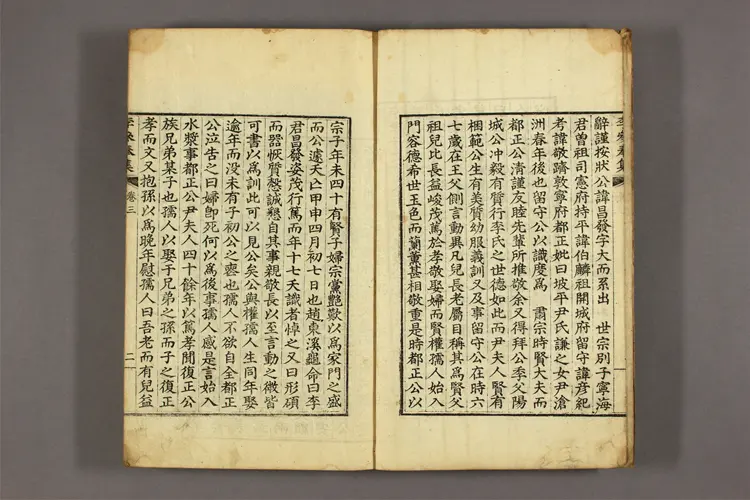 辭謹按狀公諱昌發字大而系出 世宗別子寧海
君曾祖司憲府持平諱伯麟祖開城府留守諱彦紀
考諱敬躋敦寧府都正妣曰坡平尹氏謙之女尹滄
洲春年後也留守公以識度爲 肅宗時賢大夫而
都正公清謹友睦先輩所推敬余又得拜公季父陽
城公冲殺有質行李氏之世德如此而尹夫人賢有
梱範公生有美質幼服義訓又及事留守公在時六
七歲在王父側言動異凡兒長老屬目稱其爲賢父
祖兒比長益峻茂篤於孝敬娶婦而賢權孺人始入
門容德希世玉色而蘭薰甚相敬重是時都正公以
宗子年未四十有賢子婦宗黨艶歎以爲家門之盛
而公遽夭亡甲申四月初七日也趙東溪龜命曰李
君昌發姿茂行篤而年十七夭識者悼之又曰形碩
而器恢質慤誠懇自其事親敬長以至言動之微皆
可書以爲訓此可以見公矣公與權孺人生同年娶
逾年而沒未有子初公之喪也孺人不欲自全都正
公泣告之曰婦卽死何以爲後事孺人感是言始入
水漿事都正公尹夫人四十餘年以篤孝聞復正公
族兄弟某子也孺人以娶子兄弟之孫而子之復正
孝而文又抱孫以爲晩年慰孺人曰吾老而有兒益
卷三
二